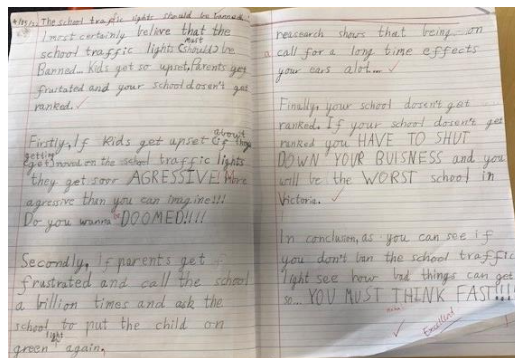 The school traffic lights should be banned.
I most certainly believe that the
must
school traffic lights (should) be
Banned... Kids get so upset, Parents get
frustated and your school dosen't get
ranked.
Firstly, If Kids get upset if they
about
getting moved on the school traffic lights
they get soor AGRESSIVE! More
agressive than you can imagine!!!
Do you wanna be DOOMED!!!!
Secondly, If parents get
frustrated and call the school
a billion times and ask the
school to put the child on
light
green again,
reasearch shows that being on
a call for a long time effects
your ears alot...
Finally, your school dosen't get
ranked. If your school dosen't get
ranked you HAVE TO SHUT
DOWN YOUR BUISNESS and you
will be the WORST school in
Victoria.
In conclusion, as you can see if
you don't ban the school traffic
light see how bad things can get
so... YOU MUST THINK FAST!!!!
Excellent